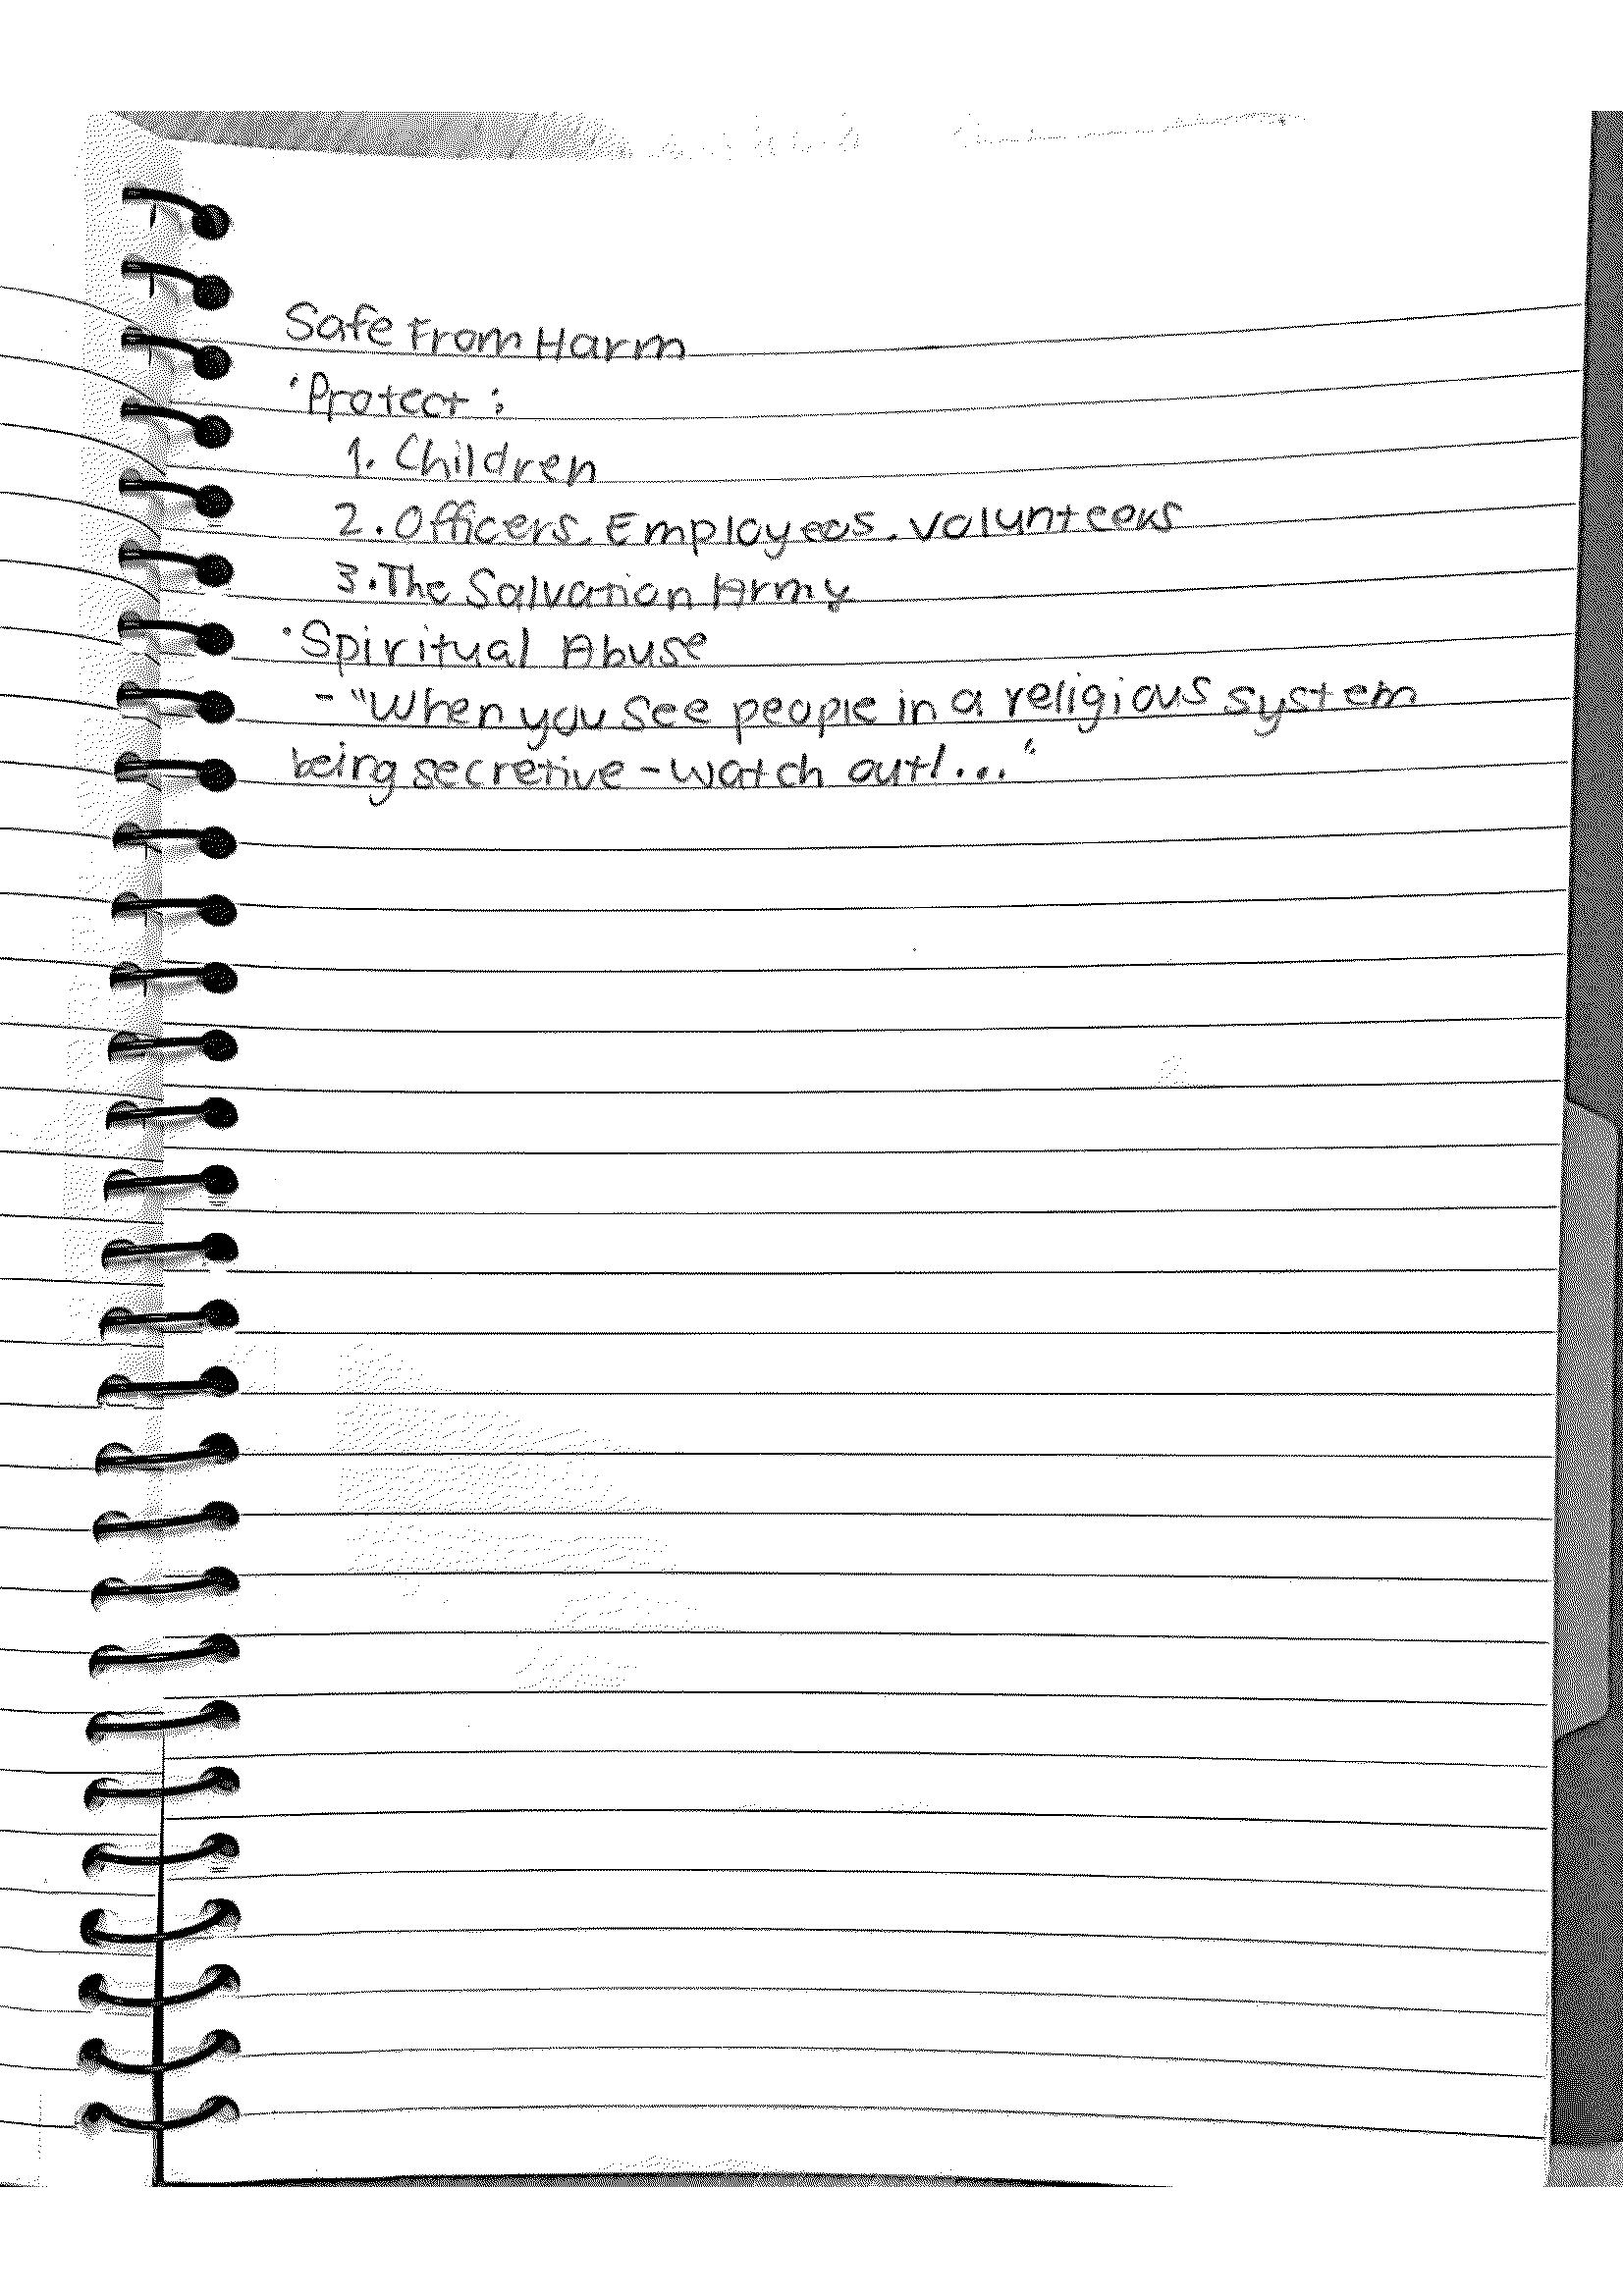 Safe From Harm
· Protect :
1. Children
2. Officers, Employees, volunteers
3. The Salvation Army
· Spiritual Abuse
- "When you see people in a religious system
being secretive - watch out!..."